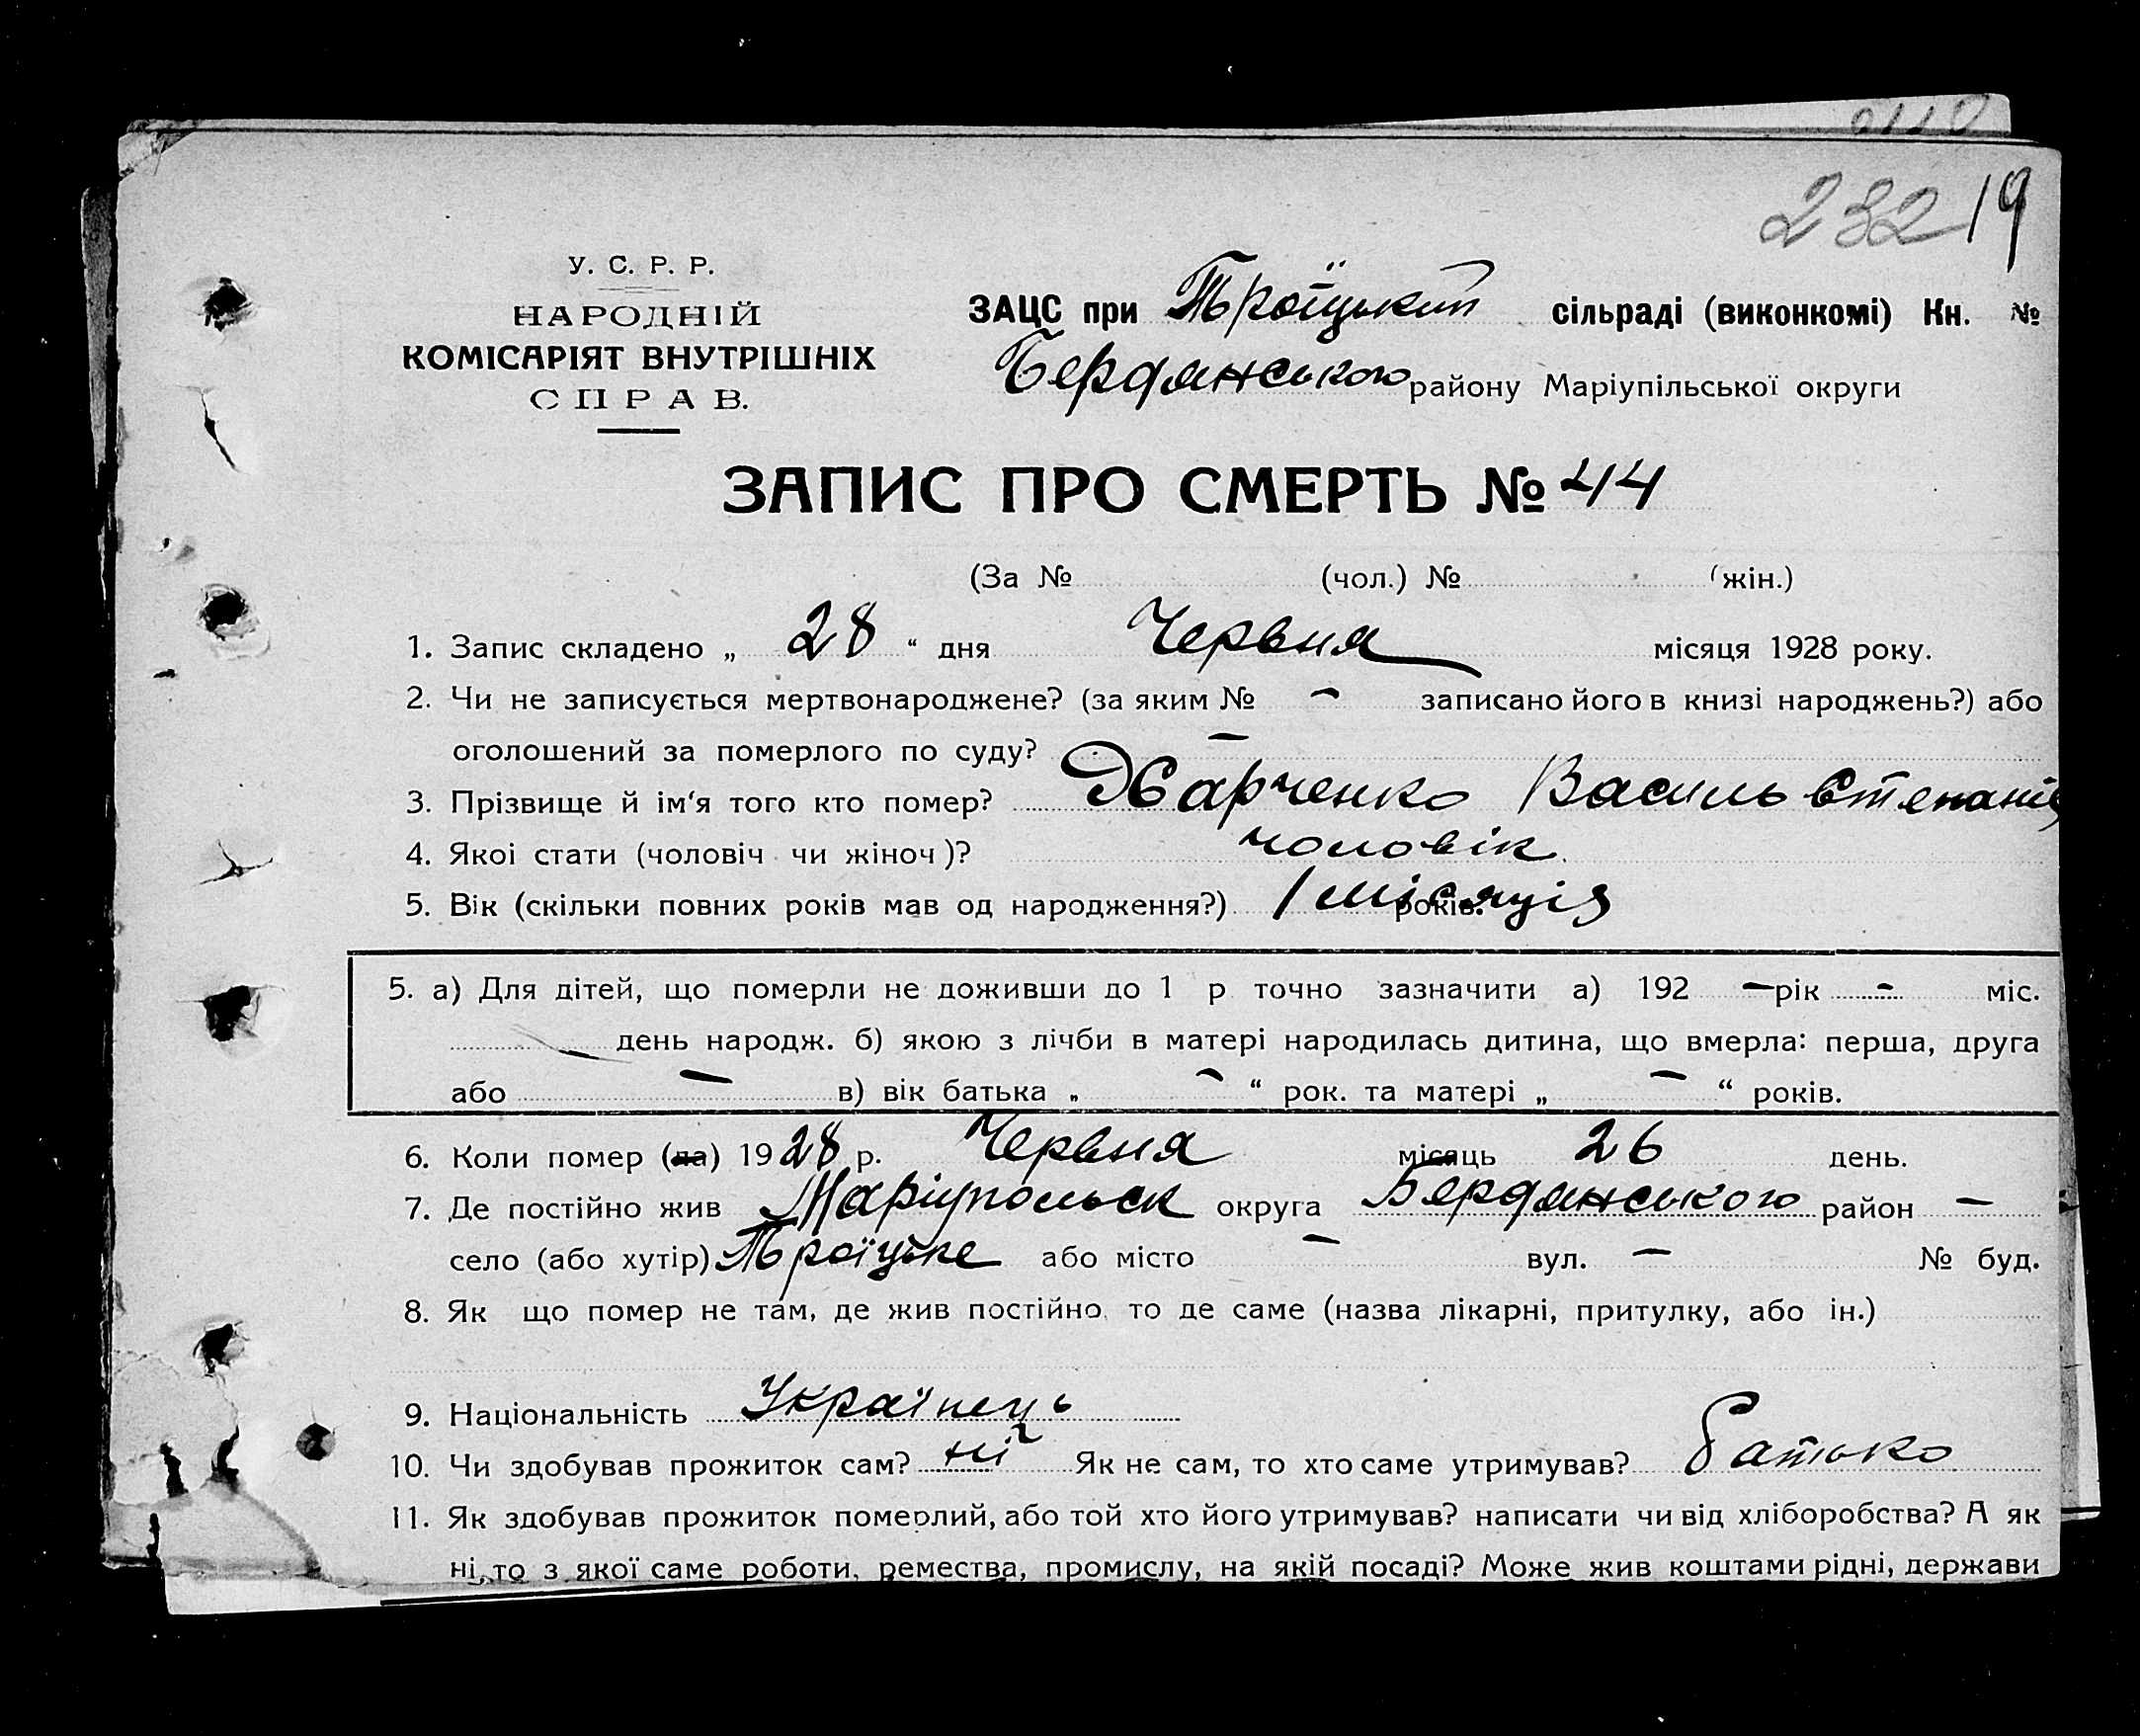 232 19
У. С. Р. Р.
НАРОДНІЙ
КОМІСАРІЯТ ВНУТРІШНІХ
СПРАВ.
ЗАЦС при Троїцькій сільраді (виконкомі) Кн. №
Бердянського району Маріупільської округи
ЗАПИС ПРО СМЕРТЬ № 44
(За № (чол.) № (жін.)
1. Запис складено „ 28 “ дня Червня місяця 1928 року.
2. Чи не записується мертвонароджене? (за яким № – записано його в книзі народжень?) або
оголошений за померлого по суду? –
3. Прізвище й ім'я того кто помер? Харченко Василь Степанів
4. Якоі стати (чоловіч чи жіноч)? чоловік
5. Вік (скільки повних років мав од народження?) 1 місяців років.
5. а) Для дітей, що померли не доживши до 1 р точно зазначити а) 192 – рік – міс.
– день народж. б) якою з лічби в матері народилась дитина, що вмерла: перша, друга
або – в) вік батька „ – “ рок. та матері „ – “ років.
6. Коли помер (ла) 1928 р. Червня місяць 26 день.
7. Де постійно жив Маріупольск округа Бердянського район –
село (або хутір) Троїцьке або місто – вул. – № буд.
8. Як що помер не там, де жив постійно, то де саме (назва лікарні, притулку, або ін.)
9. Національність Українець
10. Чи здобував прожиток сам? ні Як не сам, то хто саме утримував? батько
11. Як здобував прожиток померлий, або той хто його утримував? написати чи від хліборобства? А як
ні, то з якої саме роботи, ремества, промислу, на якій посаді? Може жив коштами рідні, держави